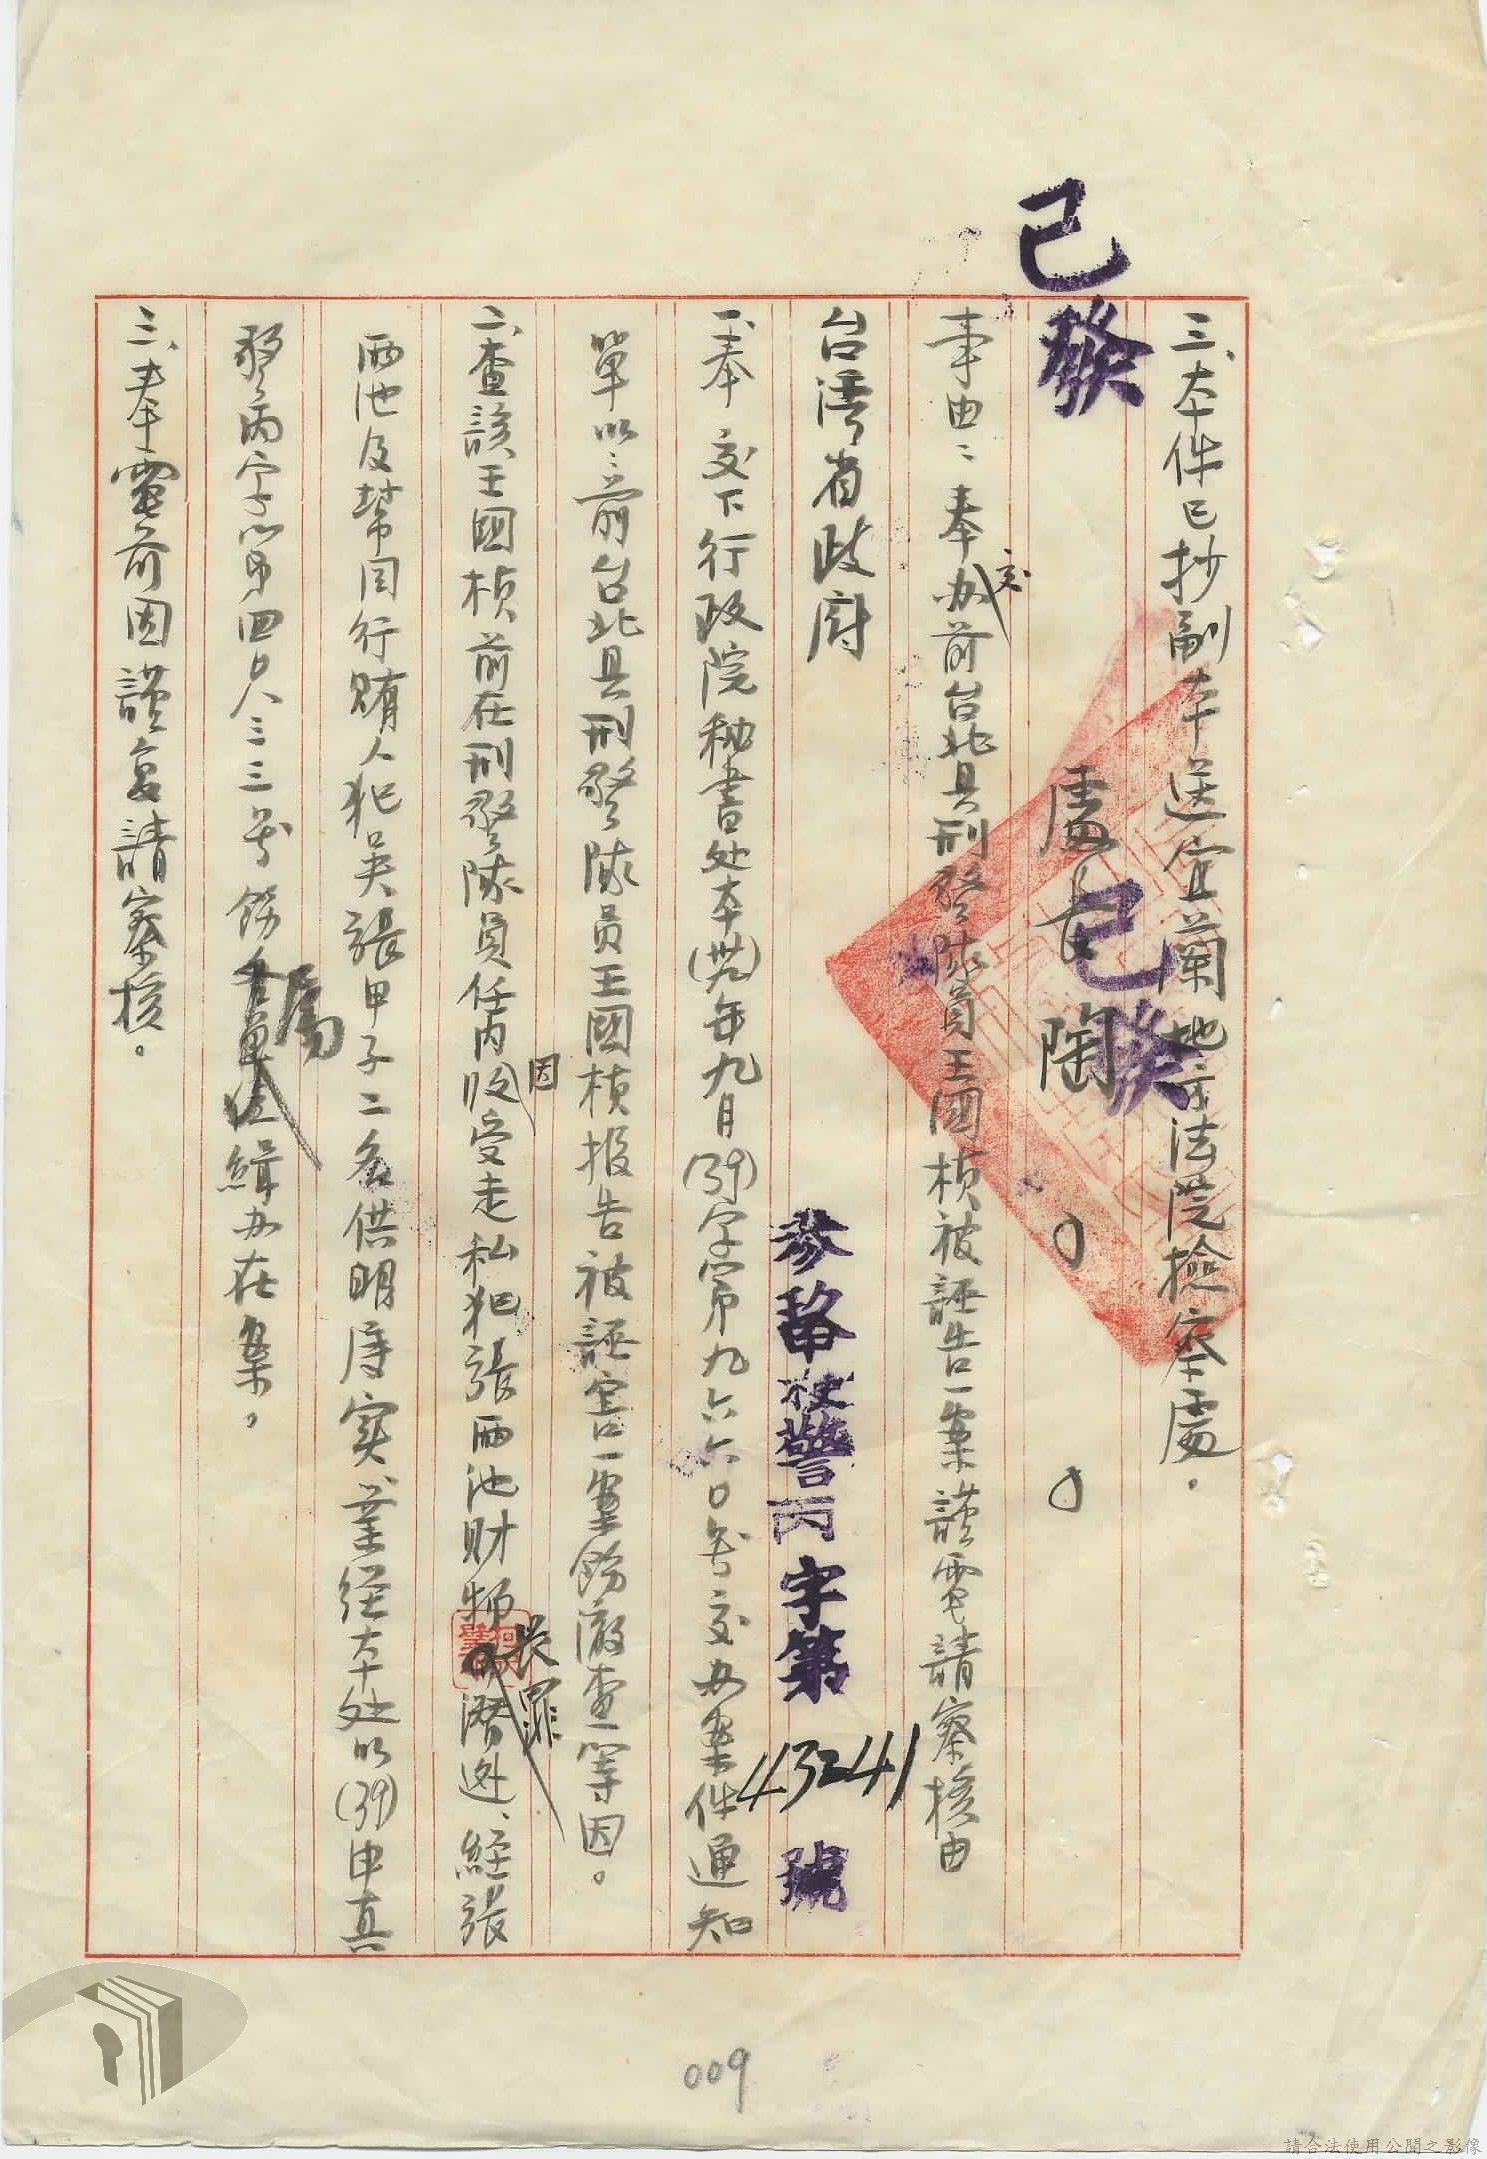 三、本件已抄副本送宜蘭地方法院檢察處。
已發
處長陶〇〇
已發
事由：奉交办前台北县刑警隊員王國楨被誣告一案謹電請察核由
台灣省政府
參玖 警丙字第43241號
一、奉交下行政院秘書处本(卅九)年九月(39)字第九六六〇号交办案件通知
單以：前台北县刑警隊員王國楨报告被誣害一案飭澈查等因。
二、查該王國楨前在刑警隊員任內因收受走私犯張西池財物畏罪潛逃、經張
西池及幇同行賄人犯吳張甲子二名供明屬實業經本处以(39)申真
警丙字第四〇八三三号飭屬緝办在案。
三、奉電前因謹复請察核。
009
請合法使用公開之影像